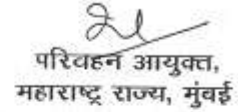 परिवहन आयुक्त,
महाराष्ट्र राज्य, मुंबई